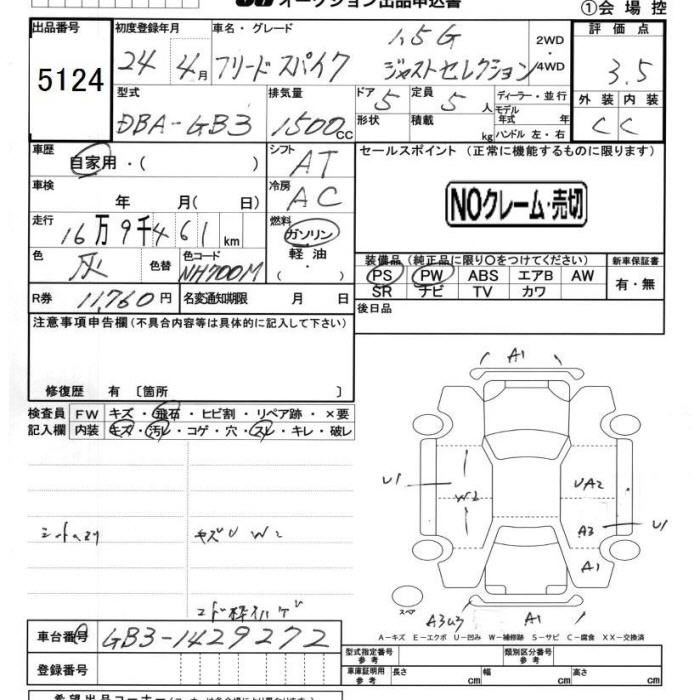 オークション出品申込書
①会場控
出品番号 5124
初度登録年月 24年 4月
車名・グレード フリードスパイク 1.5G ジャストセレクション
2WD・4WD
評価点 3.5
外装 C 内装 C
型式 DBA-GB3
排気量 1500cc
ドア 5 形状
定員 5人 積載 kg
ディーラー・並行
モデル年式 年
ハンドル 左・右
車歴 自家用・( )
シフト AT
セールスポイント (正常に機能するものに限ります)
NOクレーム・売切
車検 年 月( 日)
冷房 AC
走行 16万9千461km
燃料 ガソリン 軽油 ( ・ )
色 灰 色替
色コード NH700M
装備品(純正品に限り○をつけてください)
PS PW ABS エアB AW
SR ナビ TV カワ
新車保証書 有・無
R券 11,760円
名変通知期限 月 日
後日品
注意事項申告欄(不具合内容等は具体的に記入して下さい)
修復歴 有 〔箇所 〕
検査員記入欄
FW キズ・飛石・ヒビ割・リペア跡・×要
内装 キズ・汚レ・コゲ・穴・スレ・キレ・破レ
キズU W2
A1
U1
W2
UA2
A3
U1
A1
A3U3
A1
スペア
A-キズ E-エクボ U-凹み W-補修跡 S-サビ C-腐食 XX-交換済
車台番号 GB3-1429272
登録番号
型式指定番号 参考
類別区分番号 参考
車庫証明用 参考 長さ cm 幅 cm 高さ cm
希望出品コーナー